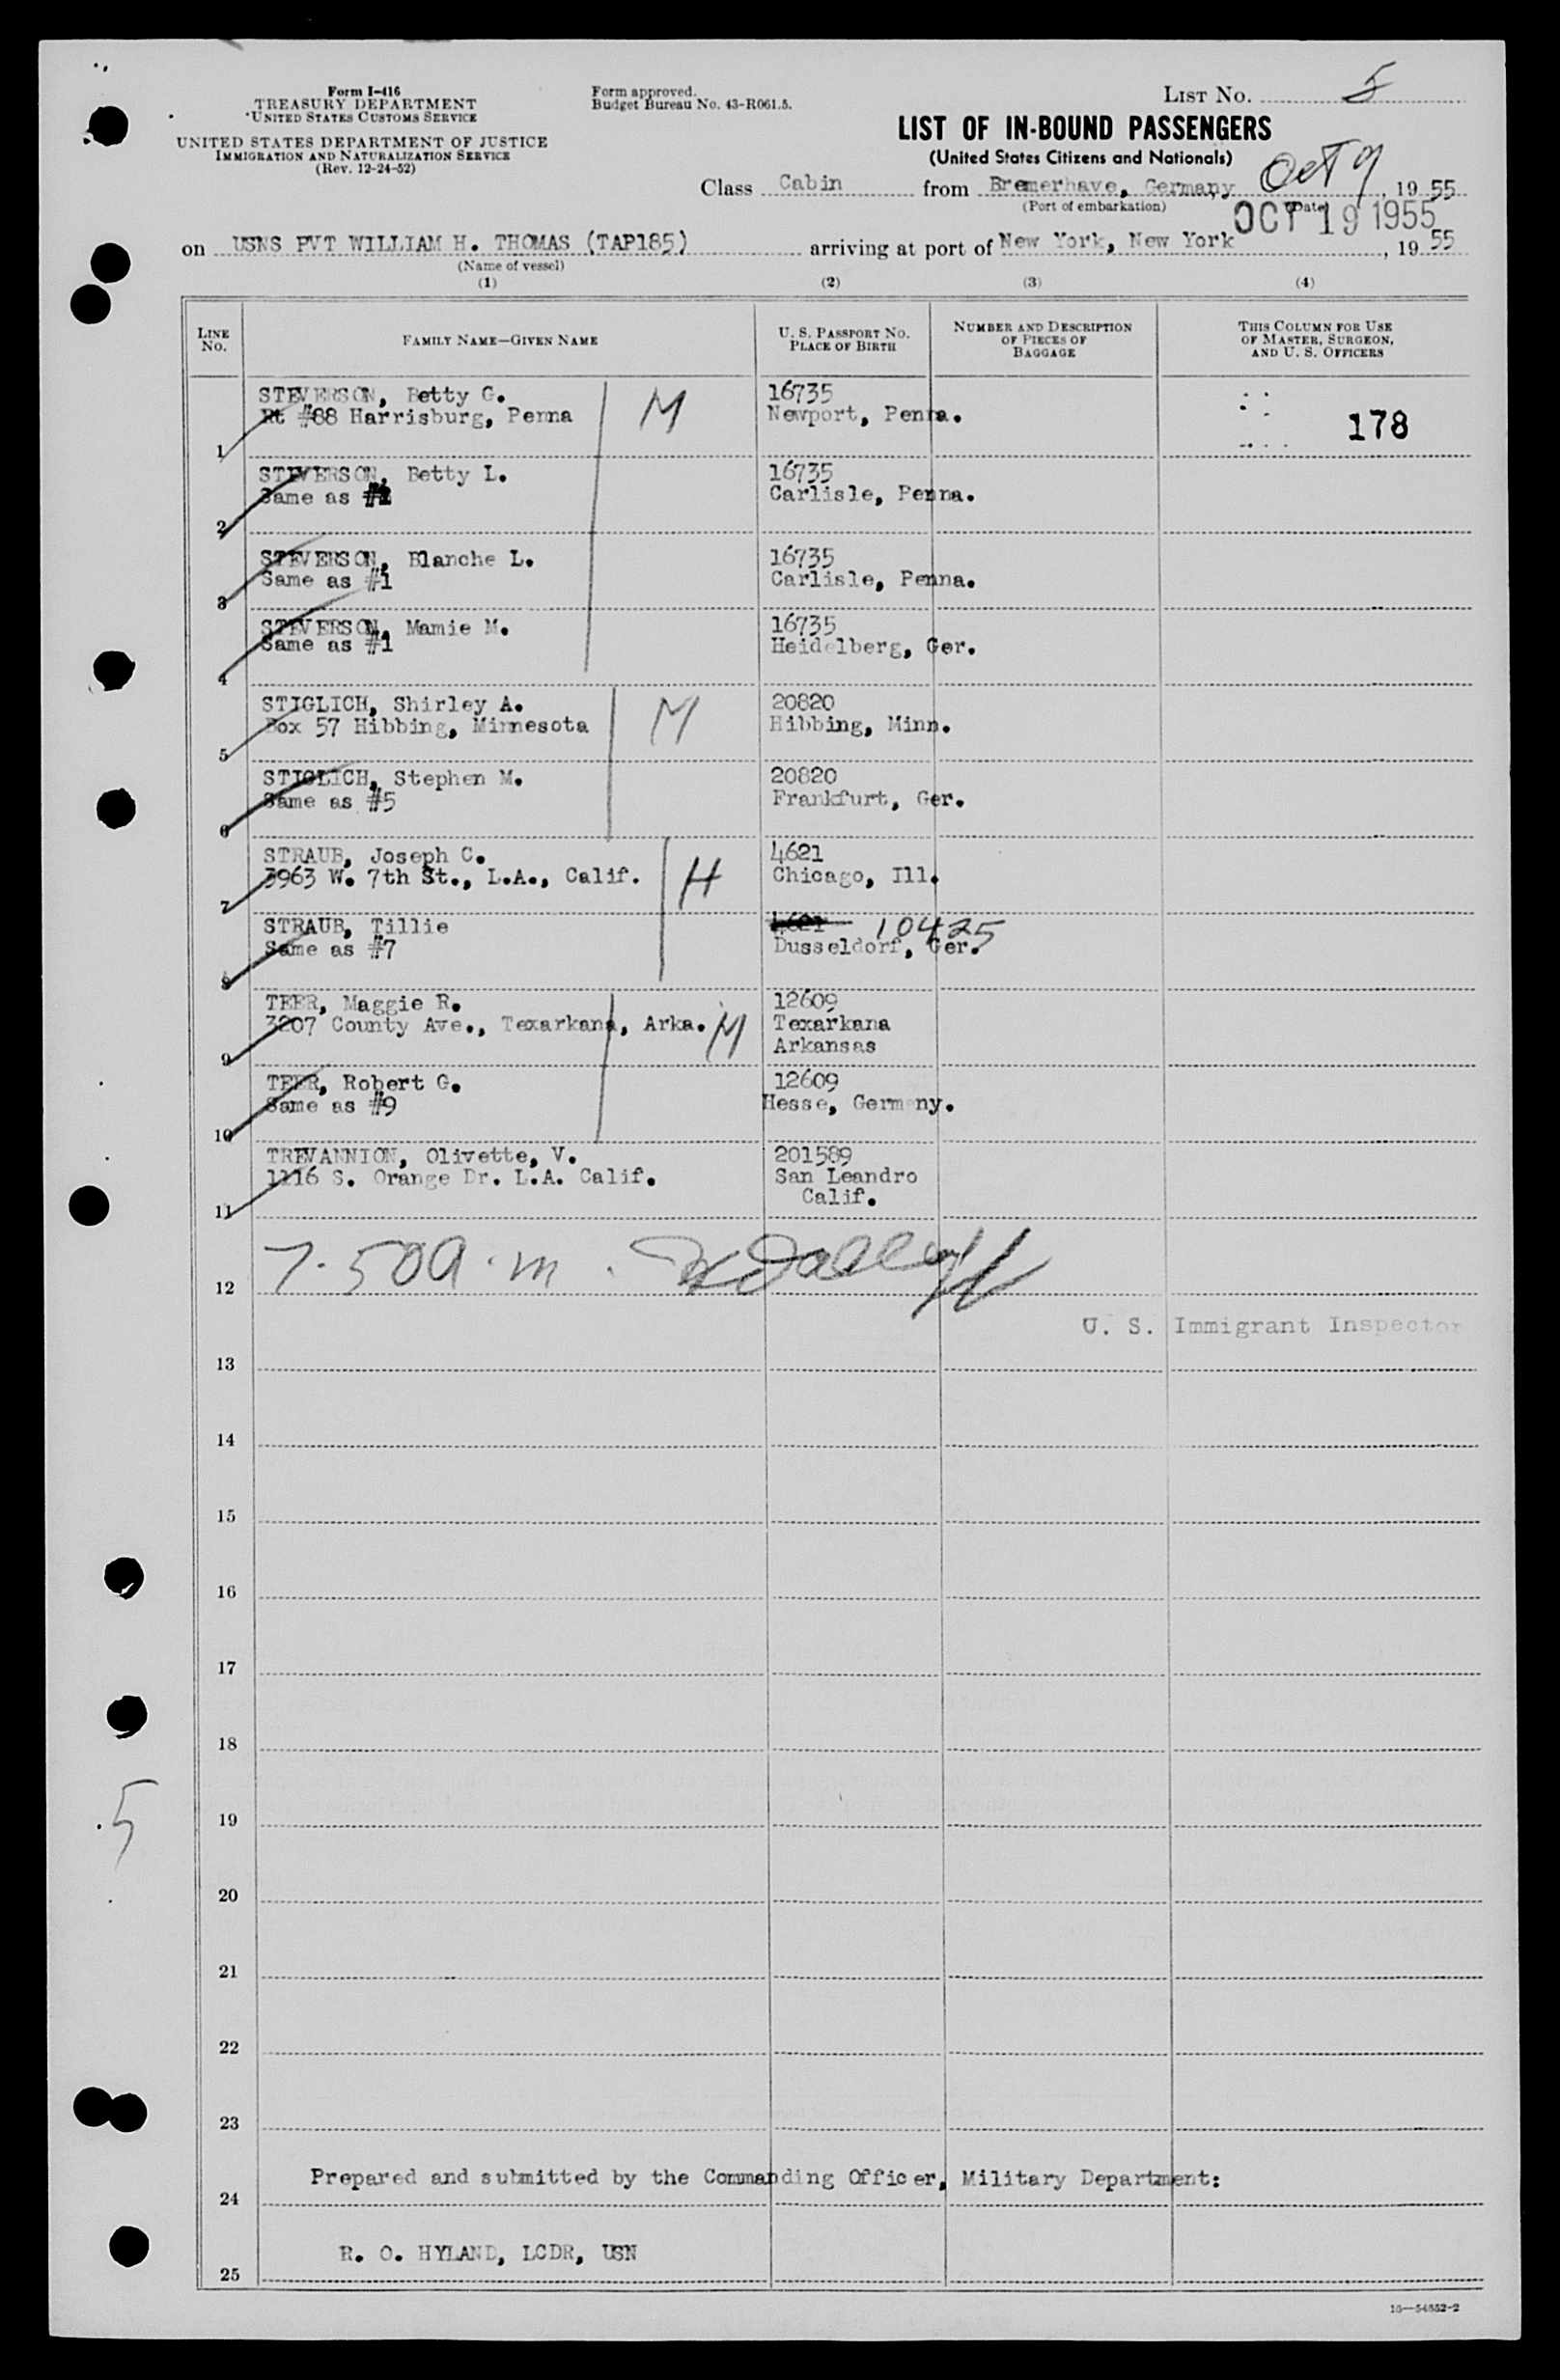 Form I-416
TREASURY DEPARTMENT
UNITED STATES CUSTOMS SERVICE
UNITED STATES DEPARTMENT OF JUSTICE
IMMIGRATION AND NATURALIZATION SERVICE
(Rev. 12-24-52)
Form approved.
Budget Bureau No. 43-R061.5.
LIST NO. 5
LIST OF IN-BOUND PASSENGERS
(United States Citizens and Nationals)
Class Cabin from Bremerhave, Germany, Oct 9, 1955
(Port of embarkation) (Date)
OCT 19 1955
on USNS PVT WILLIAM H. THOMAS (TAP185) arriving at port of New York, New York, 1955
(Name of vessel)
(1) (2) (3) (4)
LINE NO. FAMILY NAME—GIVEN NAME U. S. PASSPORT NO. PLACE OF BIRTH NUMBER AND DESCRIPTION OF PIECES OF BAGGAGE THIS COLUMN FOR USE OF MASTER, SURGEON, AND U. S. OFFICERS
STEVERSON, Betty G. M 16735
Rt #88 Harrisburg, Penna Newport, Penna. 178
1
STEVERSON, Betty L. 16735
Same as Carlisle, Penna.
2
STEVERSON, Blanche L. 16735
Same as #1 Carlisle, Penna.
3
STEVERSON, Mamie M. 16735
Same as #1 Heidelberg, Ger.
4
STIGLICH, Shirley A. M 20820
Box 57 Hibbing, Minnesota Hibbing, Minn.
5
STIGLICH, Stephen M. 20820
Same as #5 Frankfurt, Ger.
6
STRAUB, Joseph C. H 4621
3963 W. 7th St., L.A., Calif. Chicago, Ill.
7
STRAUB, Tillie 4621 10425
Same as #7 Dusseldorf, Ger.
8
TEER, Maggie R. 12609
3207 County Ave., Texarkana, Arka. M Texarkana
Arkansas
9
TEER, Robert G. 12609
Same as #9 Hesse, Germany.
10
TREVANNION, Olivette, V. 201589
1116 S. Orange Dr. L.A. Calif. San Leandro
Calif.
11
7.50a.m.
12
U. S. Immigrant Inspector
13
14
15
16
17
18
5
19
20
21
22
23
Prepared and submitted by the Commanding Officer, Military Department:
24
R. O. HYLAND, LCDR, USN
25
16—54852-2